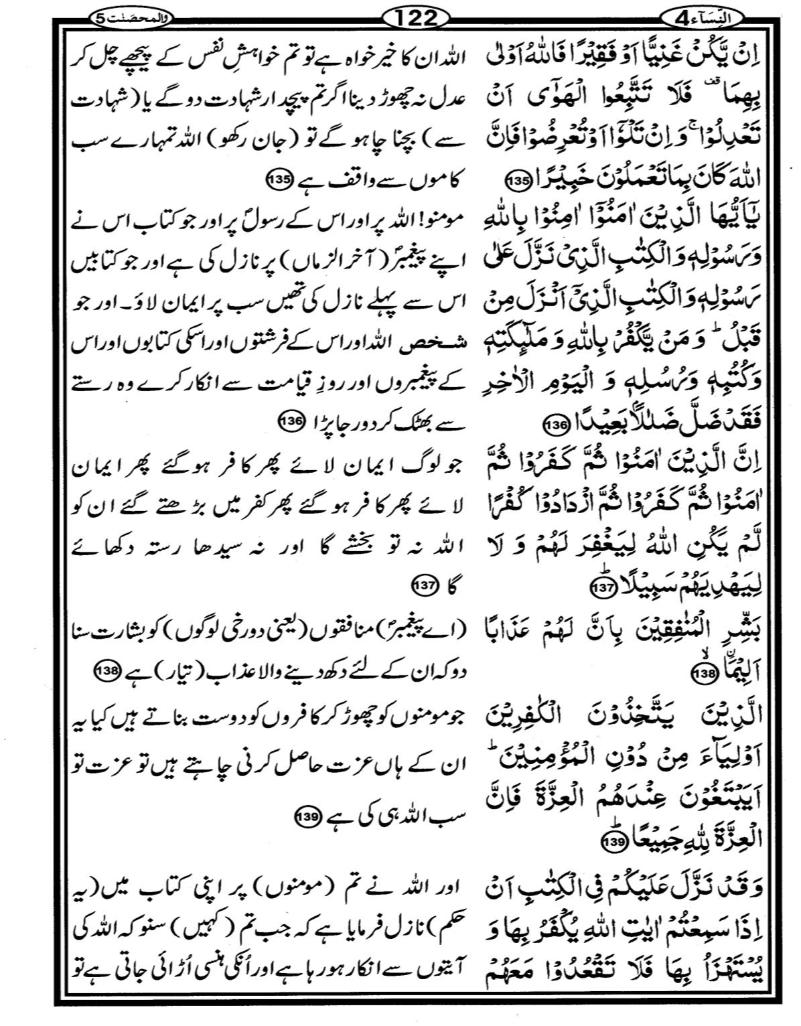 النِّسَآء 4
122
والمحصنٰت 5
اِنۡ يَّكُنۡ غَنِيًّا اَوۡ فَقِيۡرًا فَاللّٰهُ اَوۡلٰى
بِهِمَا ۟ فَلَا تَتَّبِعُوا الۡهَوٰٓى اَنۡ
تَعۡدِلُوۡا ۚ وَاِنۡ تَلۡوٗۤا اَوۡ تُعۡرِضُوۡا فَاِنَّ
اللّٰهَ كَانَ بِمَا تَعۡمَلُوۡنَ خَبِيۡرًا 135
يٰۤاَيُّهَا الَّذِيۡنَ اٰمَنُوۡۤا اٰمِنُوۡا بِاللّٰهِ
وَرَسُوۡلِهٖ وَالۡكِتٰبِ الَّذِىۡ نَزَّلَ عَلٰى
رَسُوۡلِهٖ وَالۡكِتٰبِ الَّذِىۡۤ اَنۡزَلَ مِنۡ
قَبۡلُ ؕ وَمَنۡ يَّكۡفُرۡ بِاللّٰهِ وَمَلٰٓٮِٕكَتِهٖ
وَكُتُبِهٖ وَرُسُلِهٖ وَ الۡيَوۡمِ الۡاٰخِرِ
فَقَدۡ ضَلَّ ضَلٰلًۢا بَعِيۡدًا 136
اِنَّ الَّذِيۡنَ اٰمَنُوۡا ثُمَّ كَفَرُوۡا ثُمَّ
اٰمَنُوۡا ثُمَّ كَفَرُوۡا ثُمَّ ازۡدَادُوۡا كُفۡرًا
لَّمۡ يَكُنِ اللّٰهُ لِيَغۡفِرَ لَهُمۡ وَ لَا
لِيَهۡدِيَهُمۡ سَبِيۡلًا ؕ 137
بَشِّرِ الۡمُنٰفِقِيۡنَ بِاَنَّ لَهُمۡ عَذَابًا
اَلِيۡمَۨا ۙ 138
الَّذِيۡنَ يَتَّخِذُوۡنَ الۡكٰفِرِيۡنَ
اَوۡلِيَآءَ مِنۡ دُوۡنِ الۡمُؤۡمِنِيۡنَ ؕ
اَيَبۡتَغُوۡنَ عِنۡدَهُمُ الۡعِزَّةَ فَاِنَّ
الۡعِزَّةَ لِلّٰهِ جَمِيۡعًا ؕ 139
وَقَدۡ نَزَّلَ عَلَيۡكُمۡ فِى الۡكِتٰبِ اَنۡ
اِذَا سَمِعۡتُمۡ اٰيٰتِ اللّٰهِ يُكۡفَرُ بِهَا وَ
يُسۡتَهۡزَاُ بِهَا فَلَا تَقۡعُدُوۡا مَعَهُمۡ
اللہ ان کا خیر خواہ ہے تو تم خواہشِ نفس کے پیچھے چل کر
عدل نہ چھوڑ دینا اگر تم پیچدار شہادت دو گے یا (شہادت
سے) بچنا چاہو گے تو (جان رکھو) اللہ تمہارے سب
کاموں سے واقف ہے 135
مومنو! اللہ پر اور اس کے رسولؐ پر اور جو کتاب اس نے
اپنے پیغمبرؐ (آخر الزماں) پر نازل کی ہے اور جو کتابیں
اس سے پہلے نازل کی تھیں سب پر ایمان لاؤ۔ اور جو
شخص اللہ اور اس کے فرشتوں اور اسکی کتابوں اور اس
کے پیغمبروں اور روزِ قیامت سے انکار کرے وہ رستے
سے بھٹک کر دور جا پڑا 136
جو لوگ ایمان لائے پھر کافر ہو گئے پھر ایمان
لائے پھر کافر ہو گئے پھر کفر میں بڑھتے گئے ان کو
اللہ نہ تو بخشے گا اور نہ سیدھا رستہ دکھائے
گا 137
(اے پیغمبرؐ) منافقوں (یعنی دورخی لوگوں) کو بشارت سنا
دو کہ ان کے لئے دکھ دینے والا عذاب (تیار) ہے 138
جو مومنوں کو چھوڑ کر کافروں کو دوست بناتے ہیں کیا یہ
ان کے ہاں عزت حاصل کرنی چاہتے ہیں تو عزت تو
سب اللہ ہی کی ہے 139
اور اللہ نے تم (مومنوں) پر اپنی کتاب میں (یہ
حکم) نازل فرمایا ہے کہ جب تم (کہیں) سنو کہ اللہ کی
آیتوں سے انکار ہو رہا ہے اور اُنکی ہنسی اُڑائی جاتی ہے تو